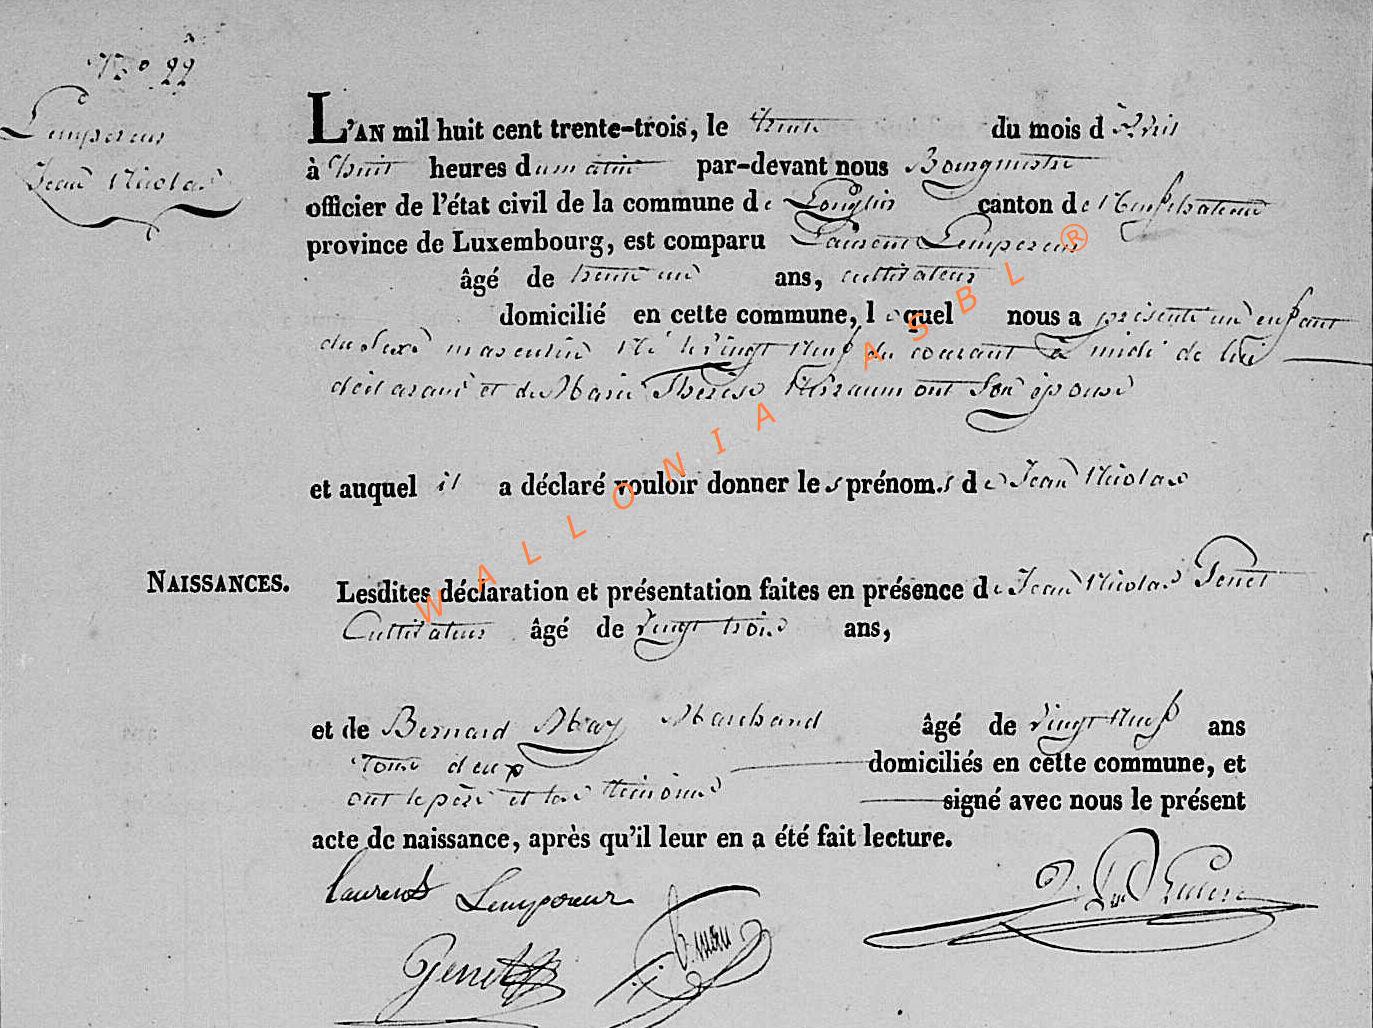 N.º 22
Lempereur
Jean Nicolas
L'AN mil huit cent trente-trois, le trente du mois d'Avril
à huit heures du matin par-devant nous Bourgmestre
officier de l'état civil de la commune de Longlier canton de Neufchateau
province de Luxembourg, est comparu Laurent Lempereur
âgé de trente un ans, cultivateur
domicilié en cette commune, lequel nous a présenté un enfant
du Sexe masculin Né le vingt Neuf du courant à midi de lui
déclarant et de Marie Thérèse son épouse
et auquel il a déclaré vouloir donner les prénoms de Jean Nicolas
NAISSANCES.
Lesdites déclaration et présentation faites en présence de Jean Nicolas Genet
Cultivateur âgé de vingt trois ans,
et de Bernard May Marchand âgé de vingt Neuf ans
Tous deux domiciliés en cette commune, et
ont le père et les témoins signé avec nous le présent
acte de naissance, après qu'il leur en a été fait lecture.
Laurent Lempereur
Genet
WALLONIA ASBL ®